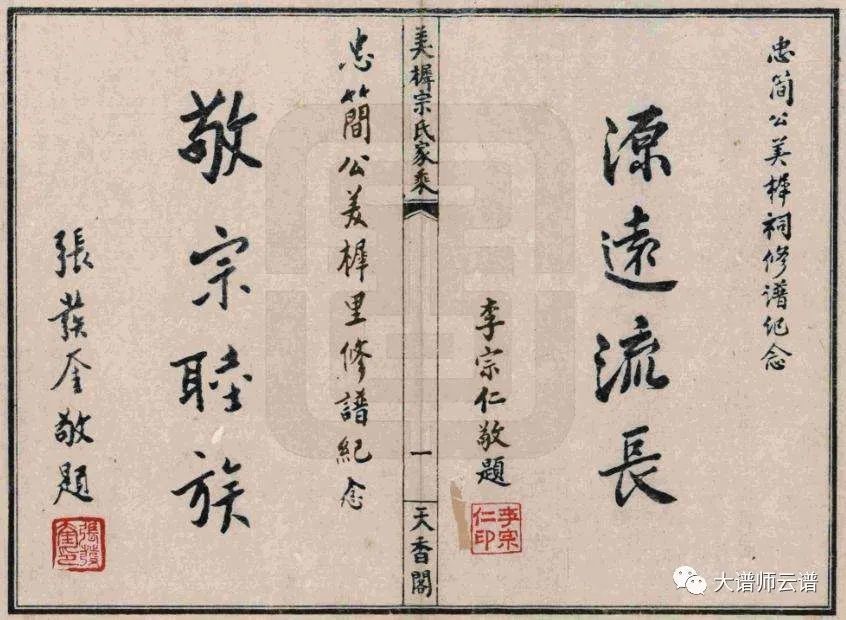 忠简公美樨祠修谱纪念
源遠流長
李宗仁敬題
李宗仁印
美樨宗氏家乘
一
天香閣
忠簡公美樨里修譜紀念
敬宗睦族
張發奎敬題
張發奎印
大谱师云谱